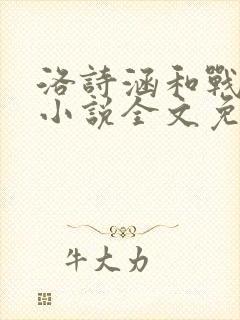 洛詩涵和戰
小說全文免
牛大力